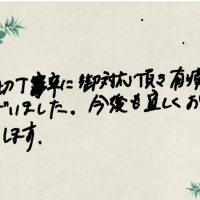 切丁寧に御対応頂き有
いました。今後も宜しくお
します。